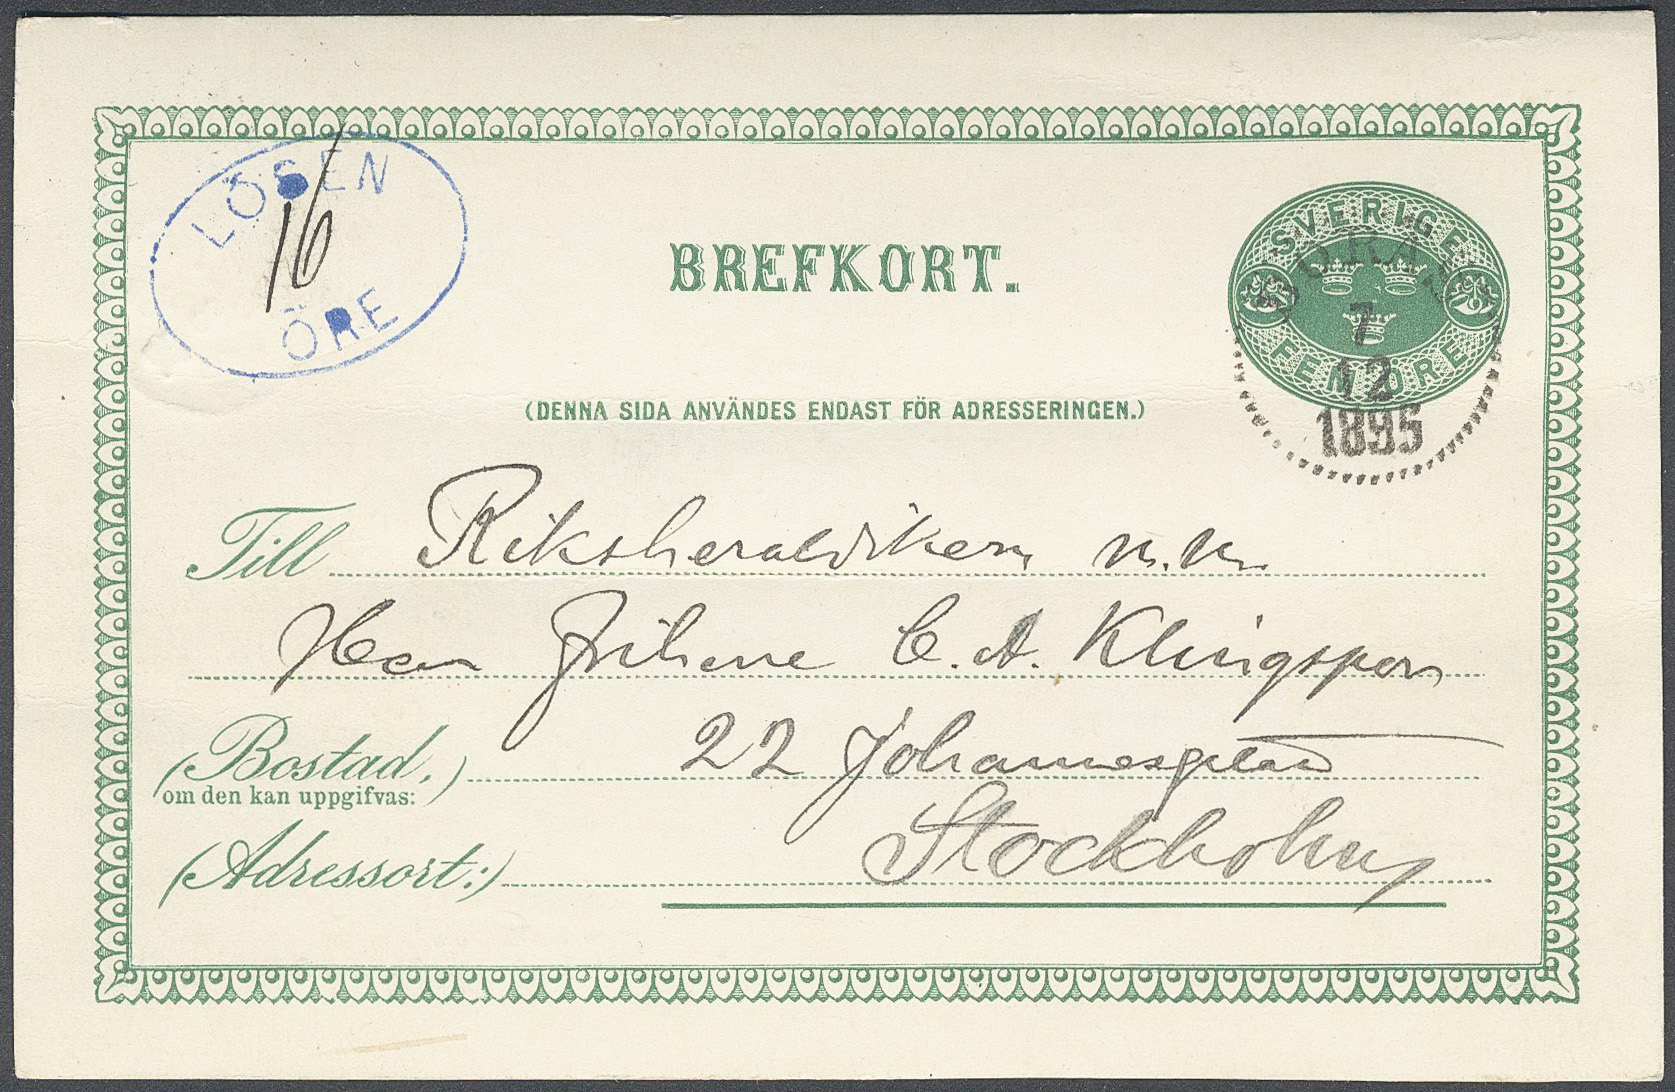 LÖSEN
16
ÖRE
BREFKORT.
SVERIGE
FEM ÖRE
BORÅS
7
12
1895
(DENNA SIDA ANVÄNDES ENDAST FÖR ADRESSERINGEN.)
Till Riksheraldikern m.m.
Herr Friherre C. A. Klingspor
(Bostad,) 22 Johannesplan
om den kan uppgifvas:
(Adressort:) Stockholm